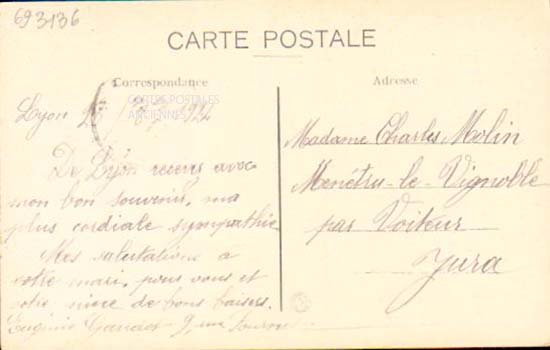 693136
CARTE POSTALE
Correspondance
Adresse
CARTES POSTALES
ANCIENNES
Lyon
De Lyon recevez avec
mon bon souvenir, ma
plus cordiale sympathie
Mes salutations à
votre mari, pour vous et
votre mère de bons baisers.
Eugénie 9, rue
Madame Charles Molin
Menétru-le-Vignoble
par Voiteur
Jura